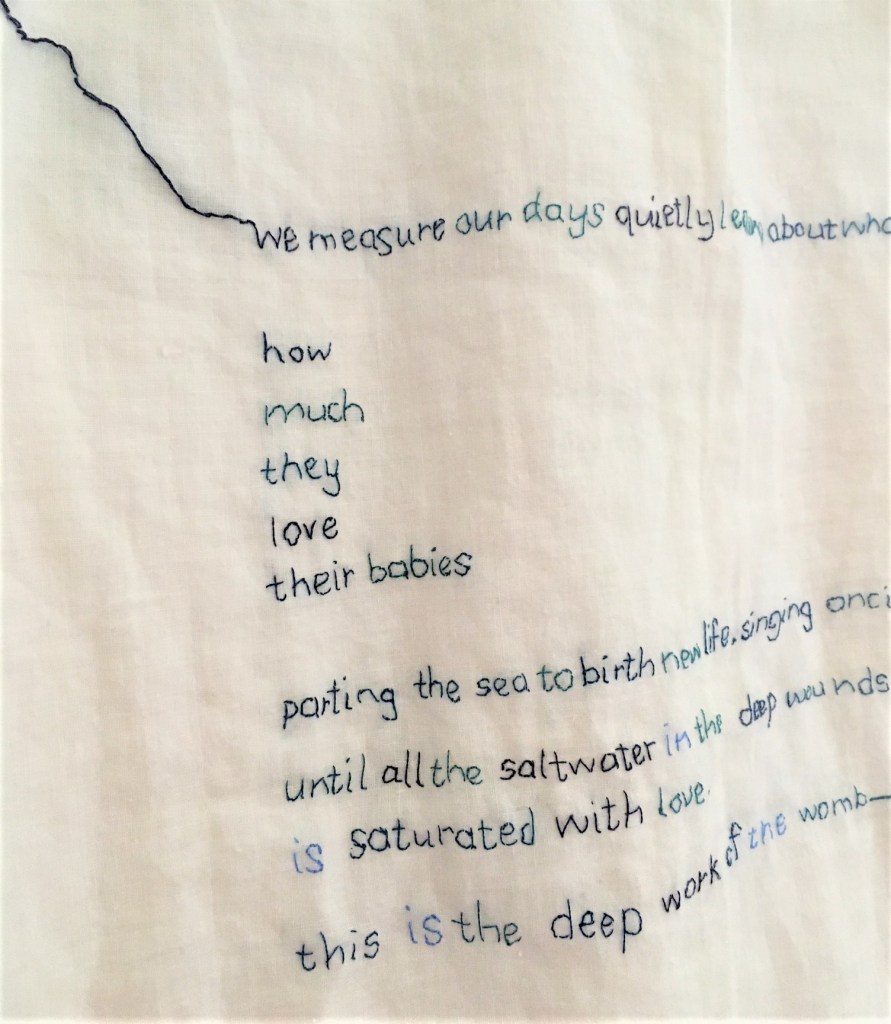 we measure our days quietly learn about
how
much
they
love
their babies
parting the sea to birth new life, singing
until all the saltwater in the deep wounds
is saturated with love.
this is the deep work of the womb—